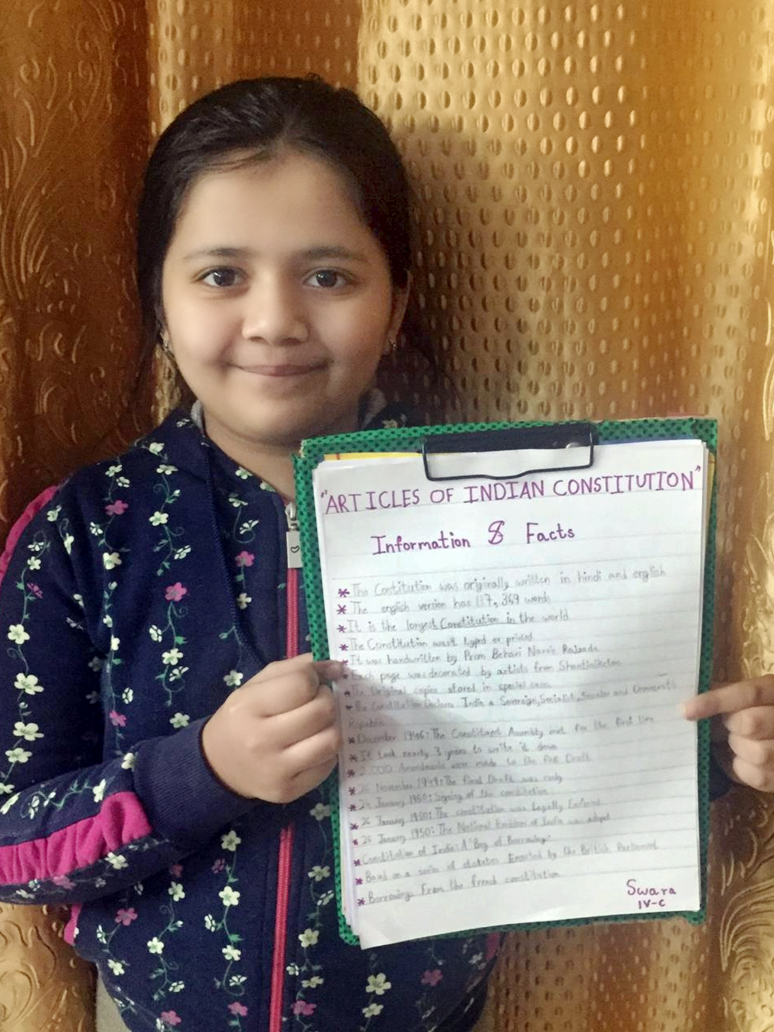 "ARTICLES OF INDIAN CONSTITUTION"
Information & Facts
* The Contitution was originally written in hindi and english
* The english version has 117,369 words
* It is the longest Constitution in the world
* The Constitution wasn't typed or
* It was handwritten by Prem Behari Narain Raizada
* Each page was decorated by artists from Shantiniketan
* The Original copies stored in special
* The Constitution Declares India a Sovereign, Socialist, Secular and
Republic
* December 1946: The Constituent Assembly met for the first time
* It took nearly 3 years to write it down
* 2,000 Amendments were made to the First Draft
* 26 November 1949: The Final Draft was
* 24 January 1950: Signing of the constitution
* 26 January 1950: The constitution was Legally
* 26 January 1950: The National Emblem of India was adopt
* Constitution of India: A 'Bag of Borrowings'
* Based on a series of statutes Enacted by the British Parliament
* Borrowings From the french constitution
Swara
IV-C